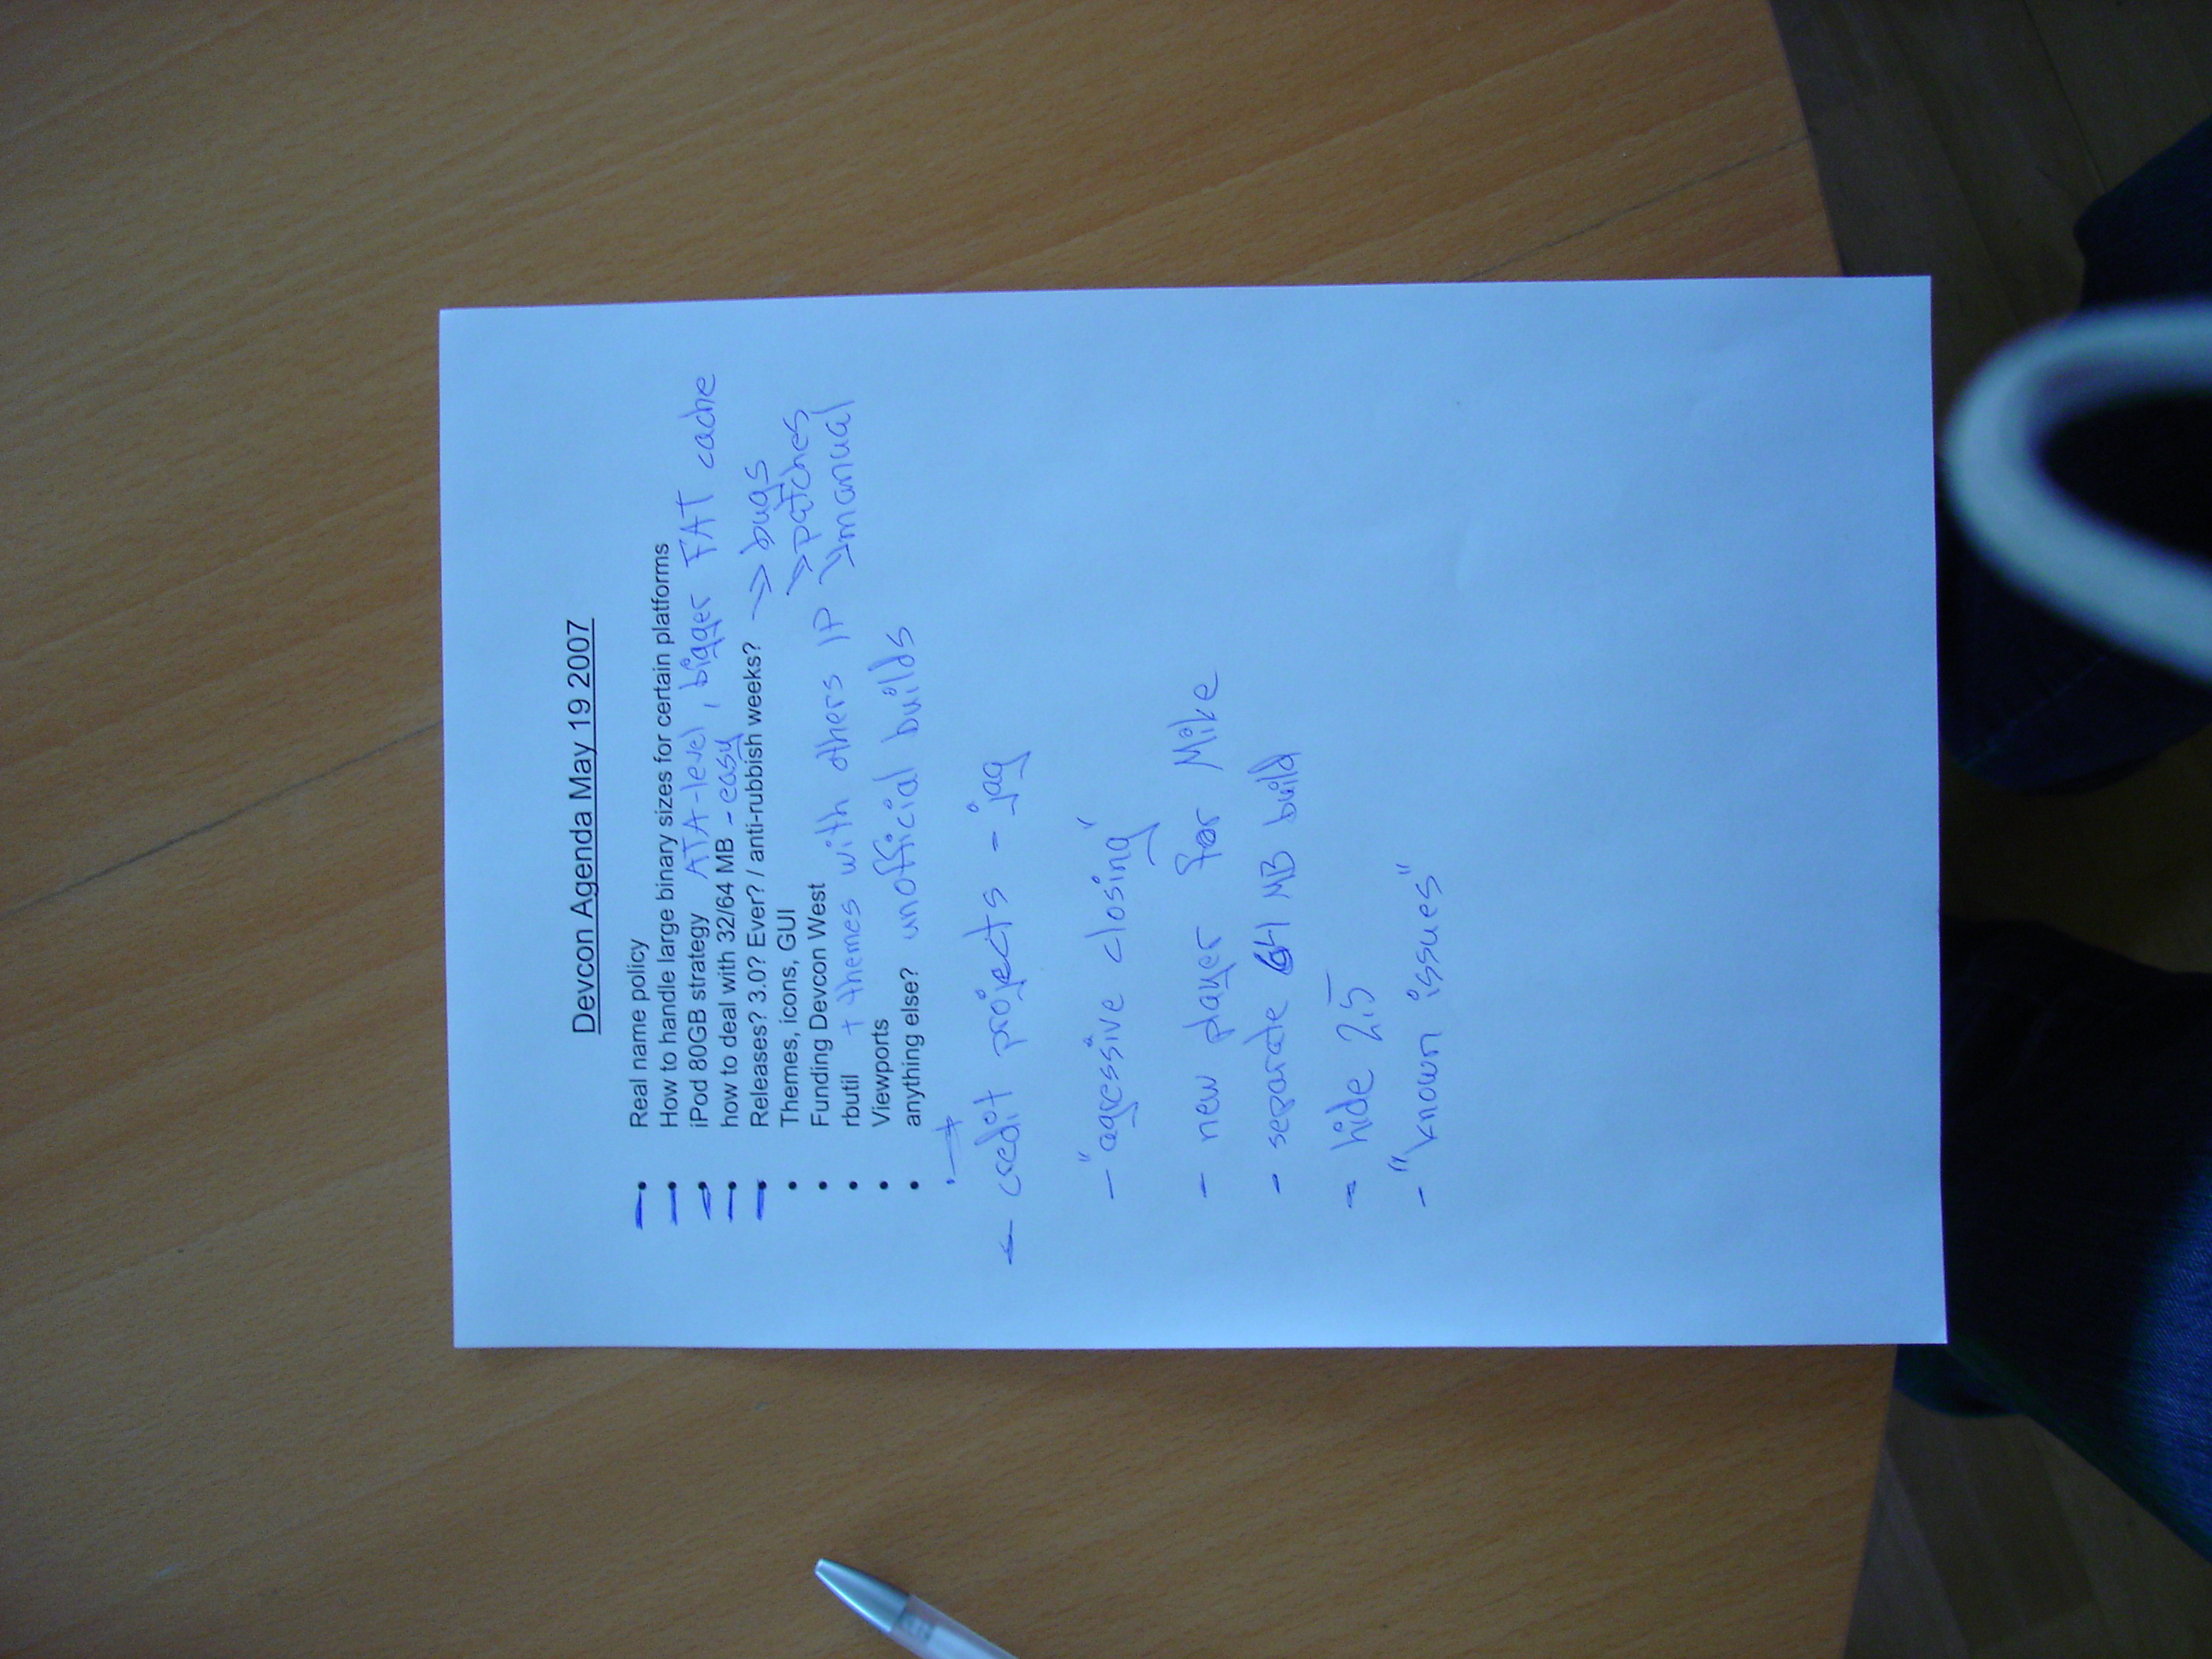 Devcon Agenda May 19 2007
• Real name policy
• How to handle large binary sizes for certain platforms
• iPod 80GB strategy ATA-level, bigger FAT cache
• how to deal with 32/64 MB - easy
• Releases? 3.0? Ever? / anti-rubbish weeks? -> bugs
• Themes, icons, GUI -> patches
• Funding Devcon West -> manual
• rbutil + themes with others IP
• Viewports
• anything else? unofficial builds
- credit projects - jag
- "agressive closing"
- new player for Mike
- separate 64 MB build
- hide 2.5
- "known issues"